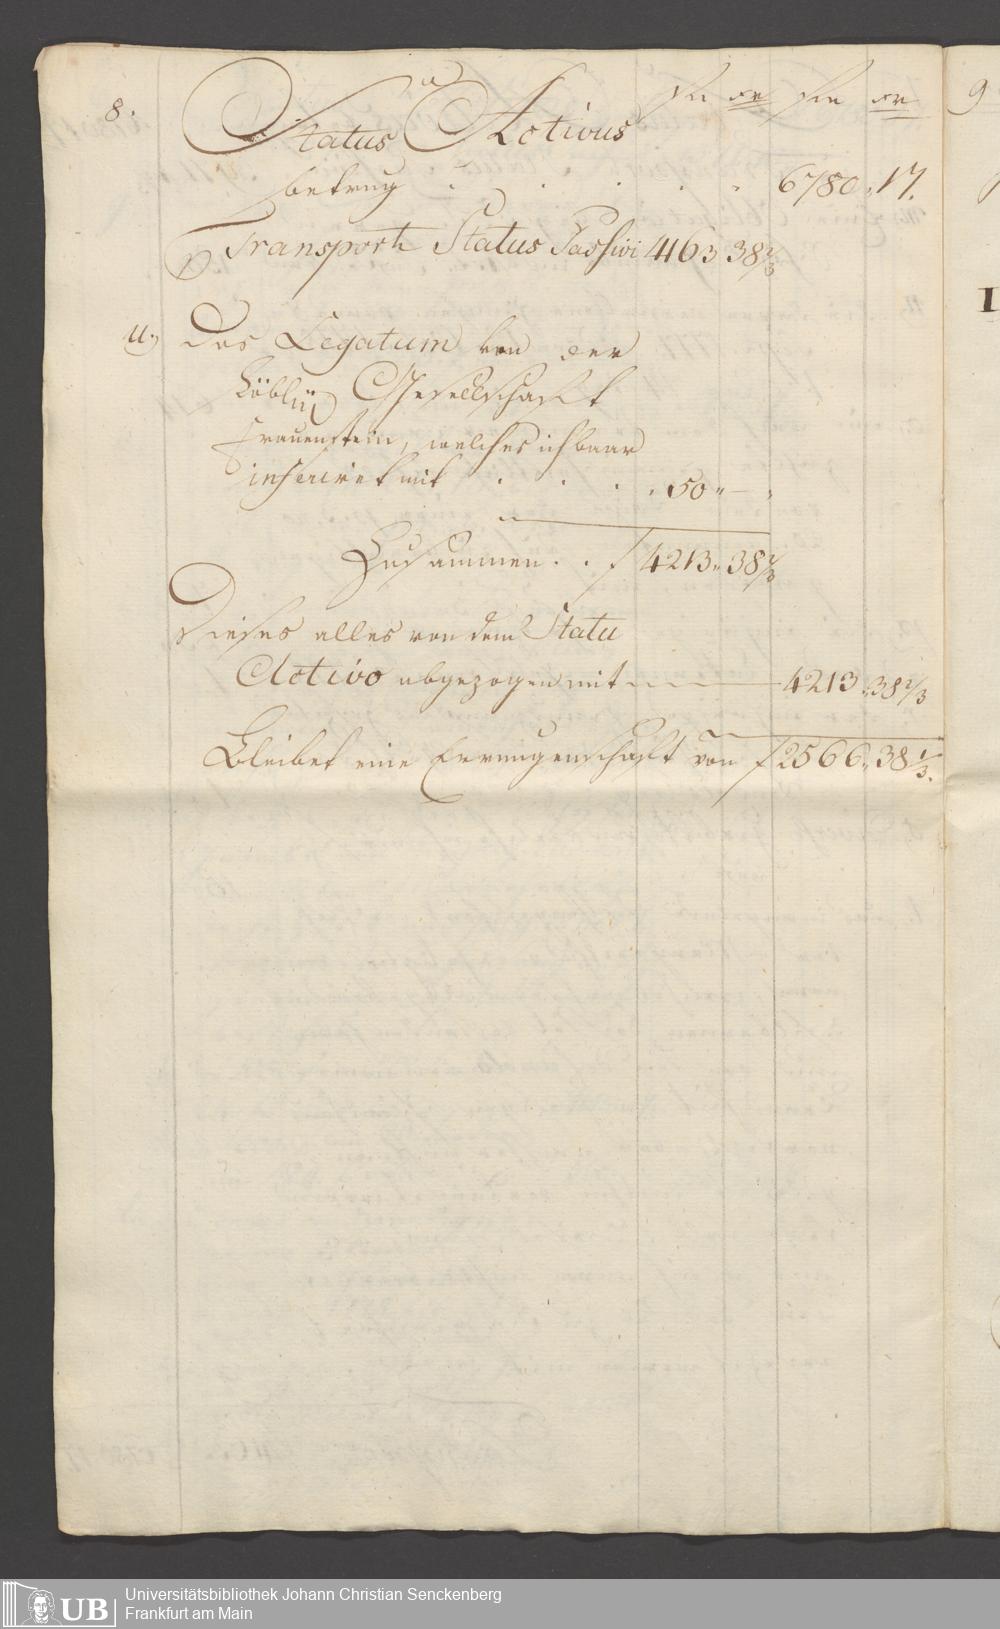 8.
Status Activus
betrug . . . . . 6780,, 17.
Transport Status Passivi 4163 38 2/3
11.) Das Legatum von der
Löblich Gesellschafft
Frauenstein, welches ich baar
mit . . . . 150,, — ,,
Zusammen . . f 4213,, 38 2/3
Dieses alles von dem Statu
Activo abgezogen mit 4213,, 38 2/3
Bleibet eine Errungenschafft von f 2566,, 38 1/3.
9
Universitätsbibliothek Johann Christian Senckenberg
UB Frankfurt am Main